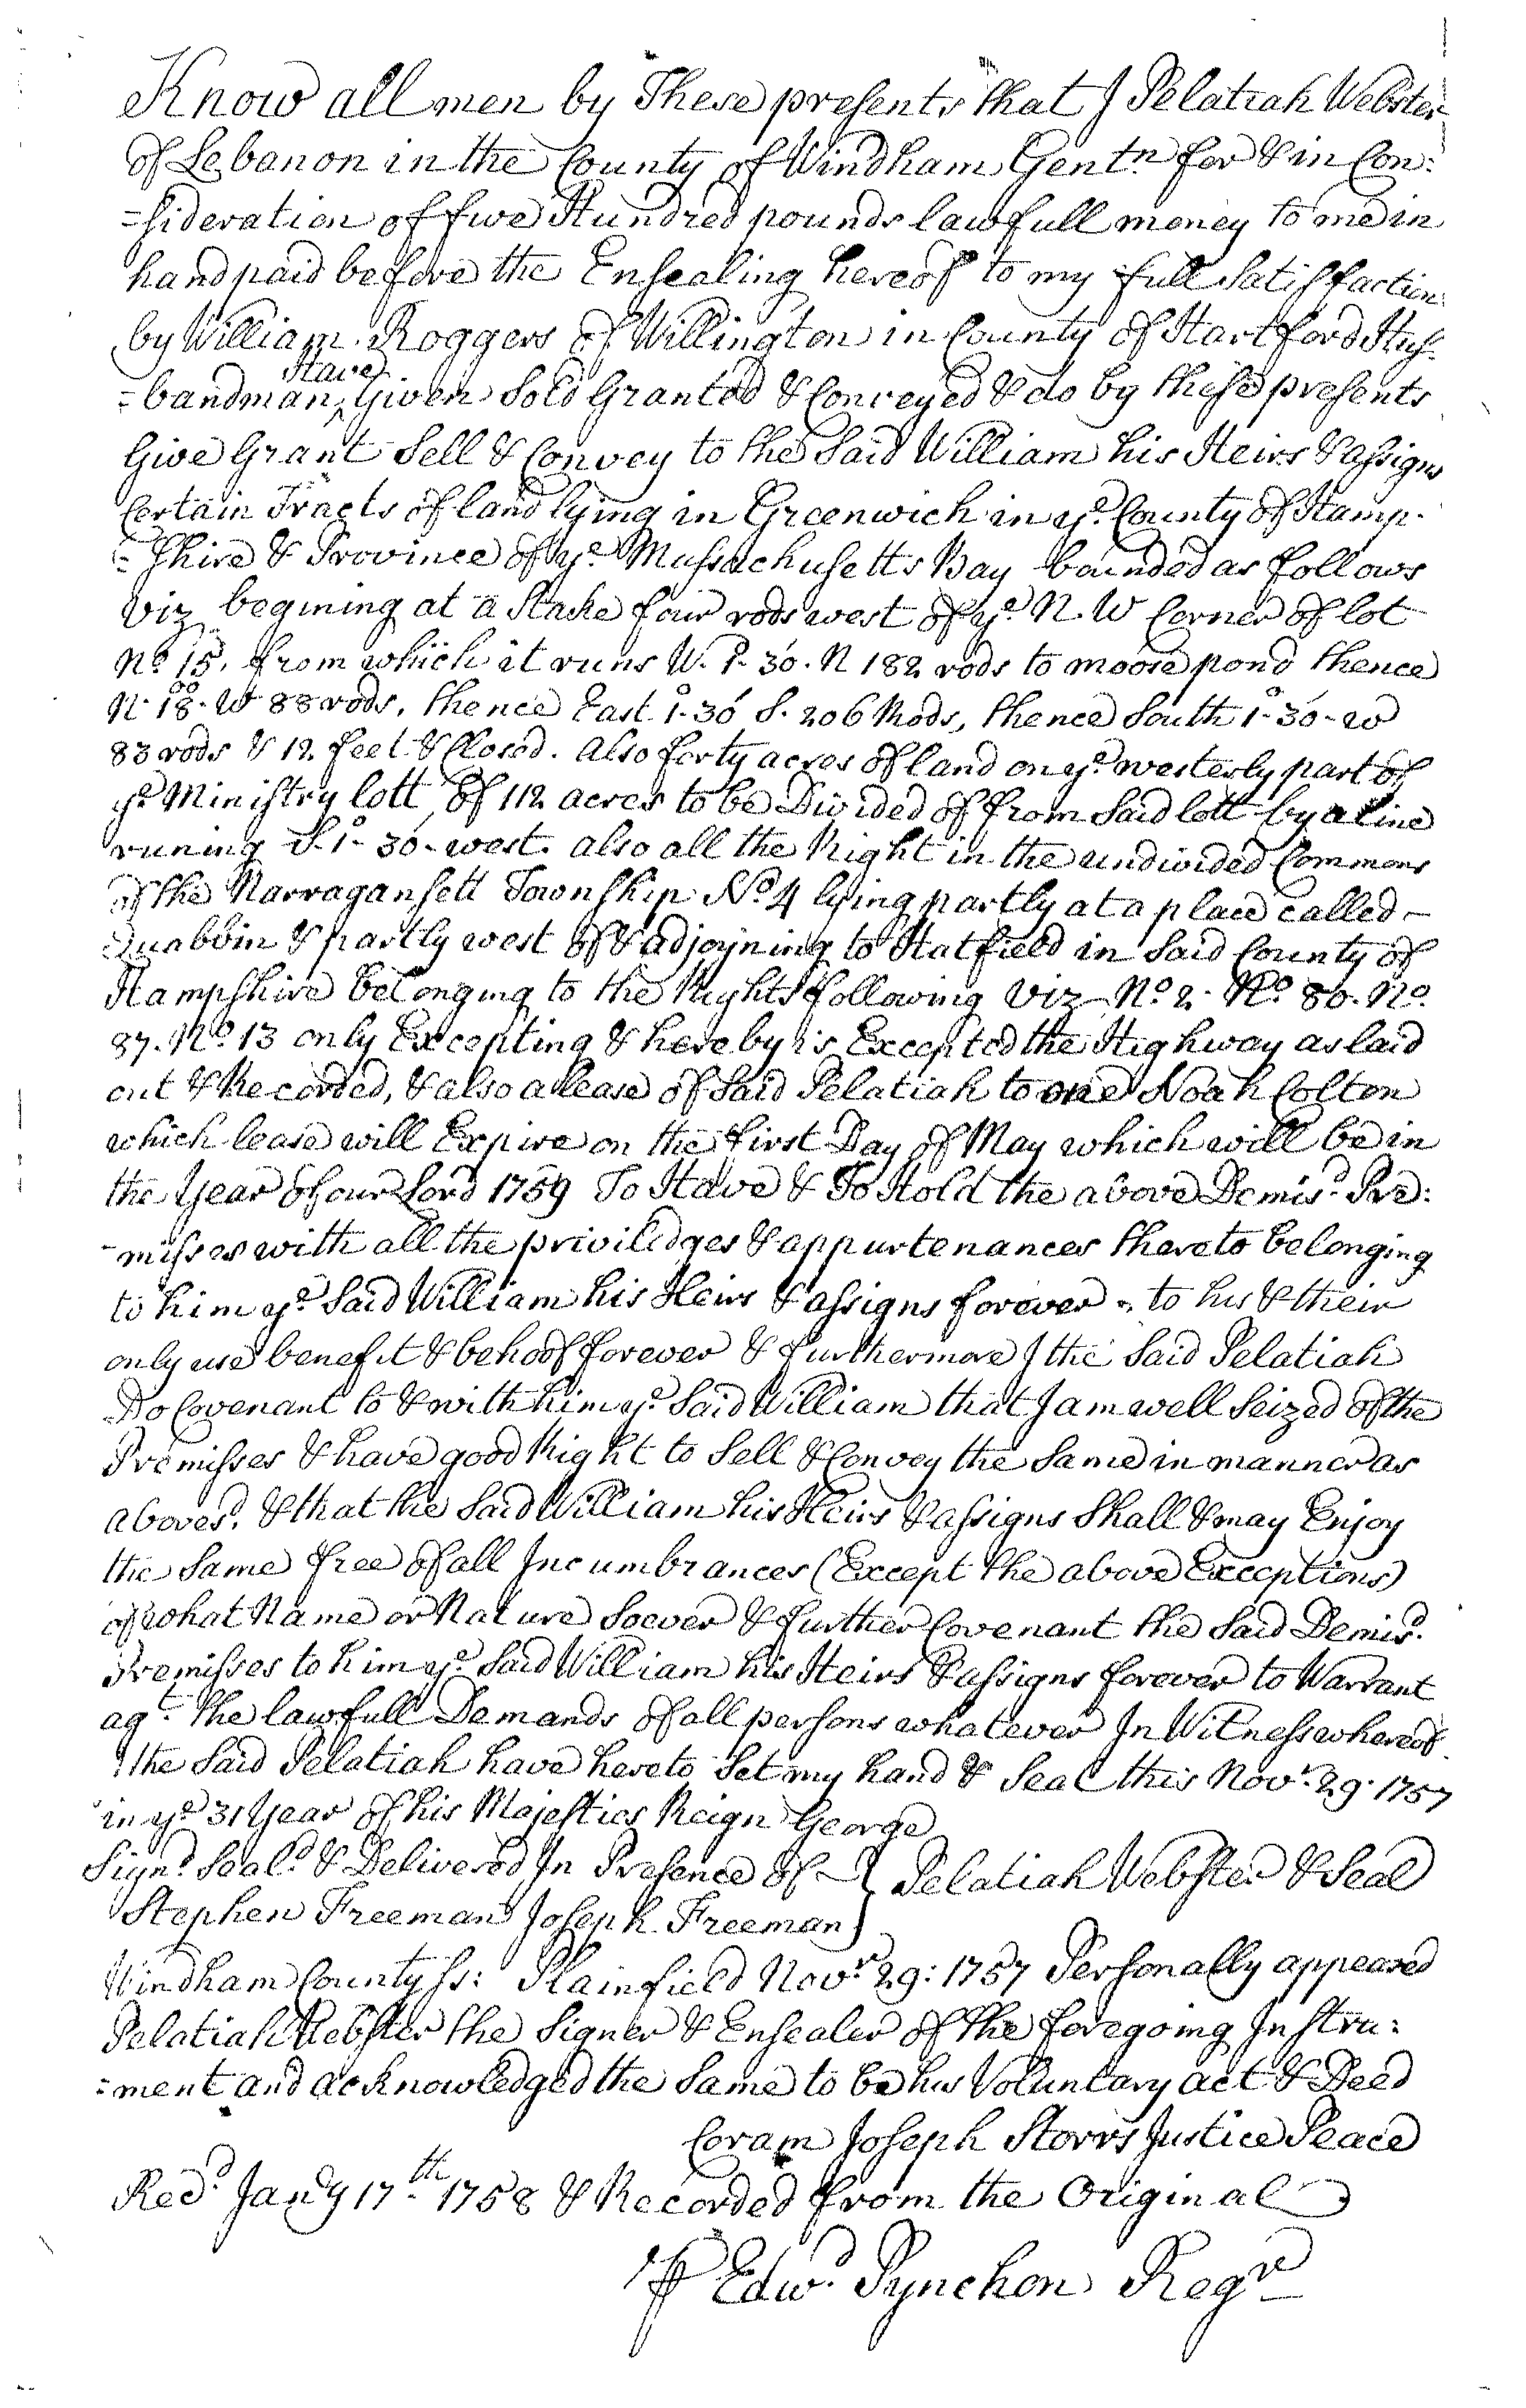 Know all men by These presents that I Pelatiah Webster
of Lebanon in the County of Windham Gentn for & in Con:
=sideration of five Hundred pounds lawfull money to me in
hand paid before the Ensealing hereof to my full Satisfaction
by William Roggers of Willington in County of Hartford Hus-
=bandman, ^Have Given Sold Granted & Conveyed & do by these presents
Give Grant Sell & Convey to the Said William his Heirs & assigns
Certain Tracts of land lying in Greenwich in ye County of Hamp-
=shire & Province of ye Massachusetts Bay bounded as follows
Viz begining at a Stake four rods west of ye N. W Corner of lot
No 15. from which it runs W. 1°- 30. N 182 rods to moose pond thence
N. 18. W 88 rods, thence East 1°- 30' S. 206 Rods, thence South 1°- 30'- W
83 rods & 12 feet & Closed. also forty acres of land on ye westerly part of
ye Ministry lott of 112 acres to be Divided of from Said lott by a line
runing S. 1°- 30'- west. also all the Right in the undivided Commons
of the Narragansett Township No 4 lying partly at a place called -
Quabbin & partly west of & adjoyning to Hatfield in Said County of
Hampshire belonging to the Rights following Viz No 2. No 86. No
87. No 13 only Excepting & hereby is Excepted the Highway as laid
out & Recorded, & also a lease of Said Pelatiah to one Noah Colton
which lease will Expire on the first Day of May which will be in
the Year of our Lord 1759 To Have & To Hold the above Demisd Pre:
-misses with all the priviledges & appurtenances thereto belonging
to him ye Said William his Heirs & assigns forever to his & their
only use benefit & behoof forever & furthermore I the Said Pelatiah
Do Covenant to & with him ye Said William that I am well Seized of the
Premisses & have good Right to Sell & Convey the Same in manner as
abovesd. & that he Said William his Heirs & assigns Shall & may Enjoy
the Same free of all Incumbrances (Except the above Exceptions)
of what Name or Nature Soever & further Covenant the Said Demisd
Premisses to him ye Said William his Heirs & assigns forever to Warrant
agt the lawfull Demands of all persons whatever In Witness whereof
I the Said Pelatiah have hereto Set my hand & Seal this Novr 29. 1757
in ye 31 Year of his Majesties Reign George
Signd Seald & Delivered In Presence of - } Pelatiah Webster & Seal
Stephen Freeman Joseph Freeman }
Windham County ss: Plainfield Novr 29: 1757 Personally appeared
Pelatiah Webster the Signer & Ensealer of the foregoing Instru:
=ment and acknowledged the Same to be his Voluntary act & Deed
Coram Joseph Storrs Justice Peace
Recd Jany 17th 1758 & Recorded from the Original
℔ Edwd Pynchon Regr